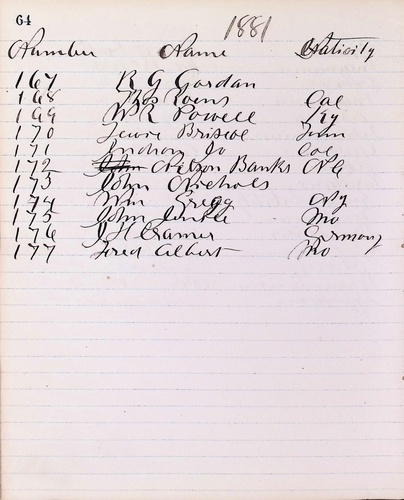 64
1881
Number Name Nativity
167 R G Gordan
168 Thos Roens Cal
169 W R Powell Ky
170 Briscoe Tenn
171 Indian Jo Cal
172 Nelson Banks N C
173 John Nichols
174 Wm Gregg N Y
175 John Mo
176 J H Cramer Germany
177 Fred Albert Mo